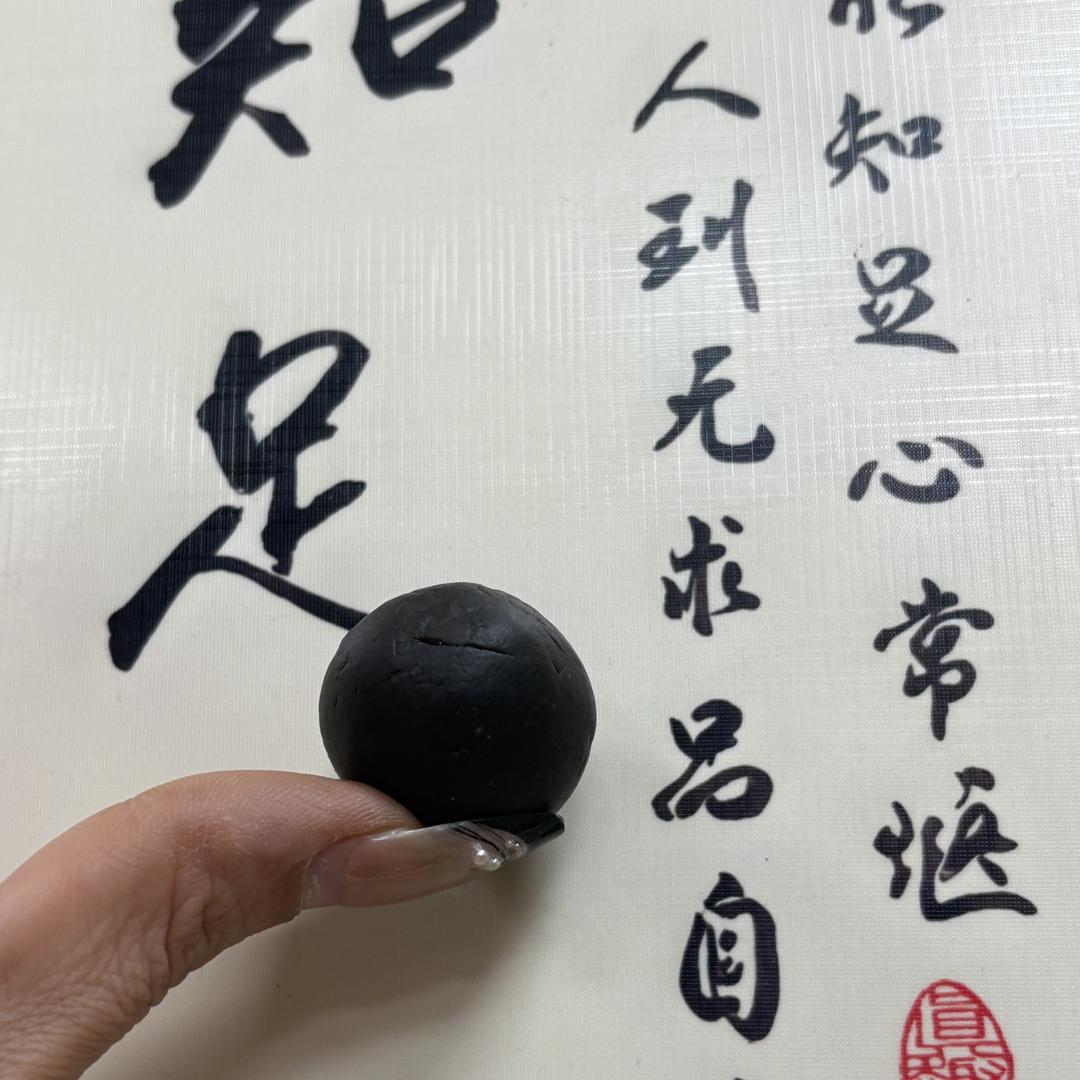 知足心常惬
人到无求品自
知足